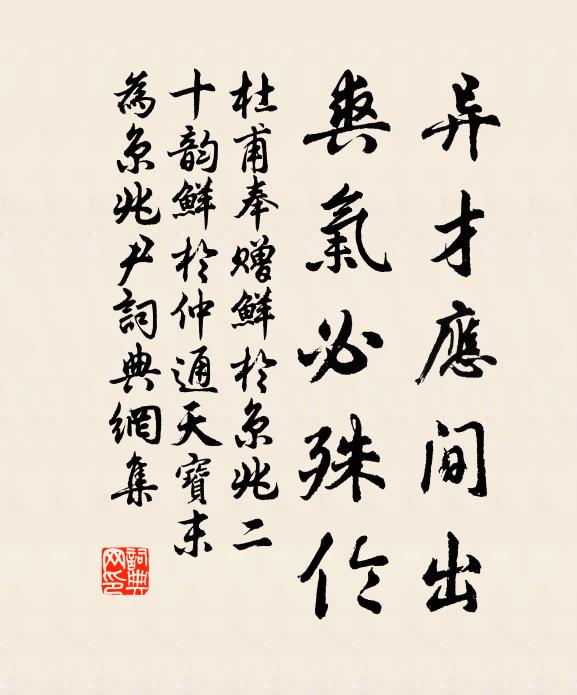 异才應間出
爽氣必殊倫
杜甫奉赠鮮於京兆二
十韵鮮於仲通天寶末
為京兆尹詞典網集
詞典网印